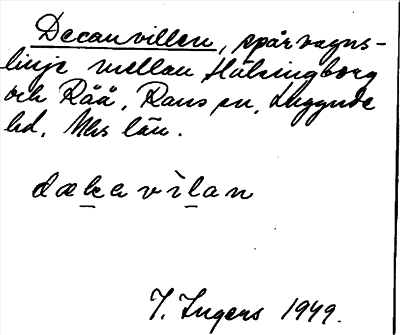 Decauvillen, spårvagns-
linje mellan Hälsingborg
och Råå, Raus sn, Luggude
hd, Mhs län.
dækavìlan
I. Ingers 1949.